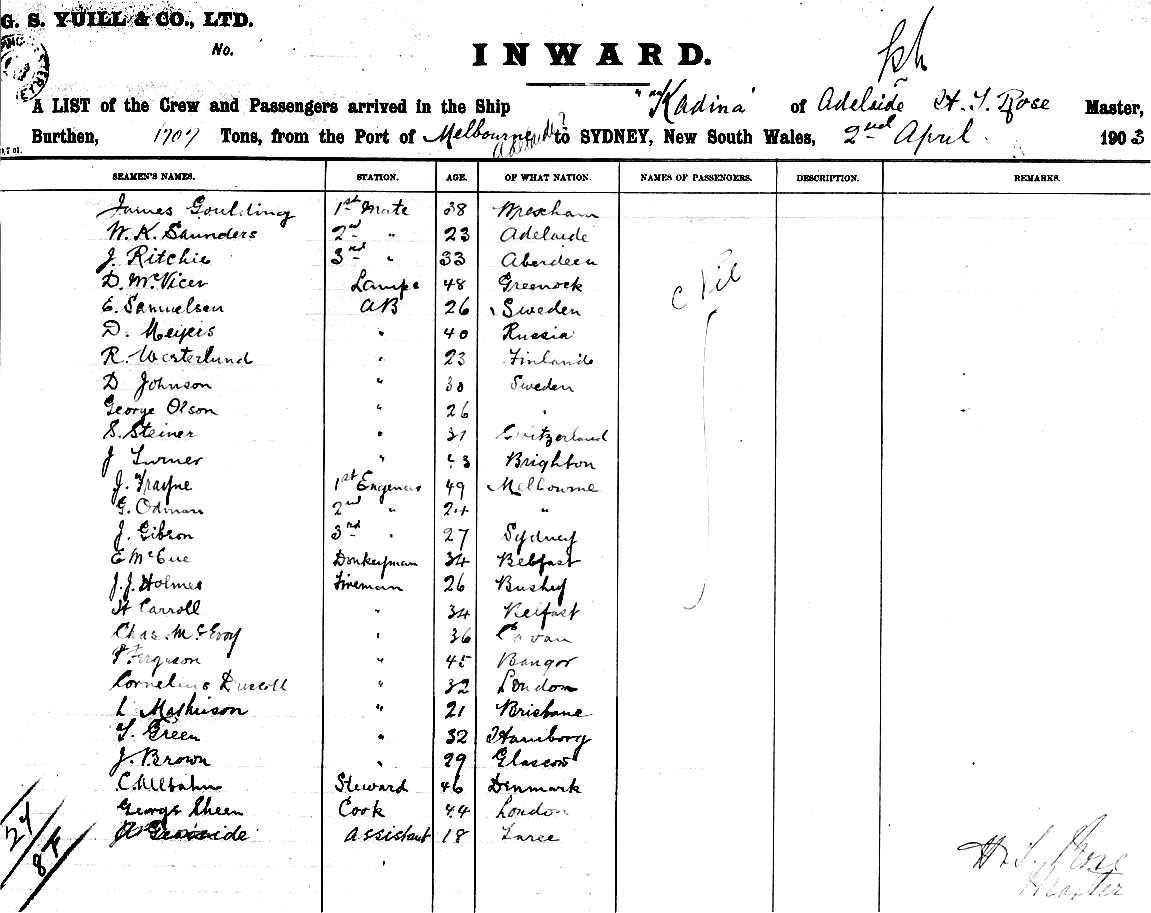 G. S. YUILL & CO., LTD.
No.
INWARD.
A LIST of the Crew and Passengers arrived in the Ship "Kadina" of Adelaide H. S. Rose Master,
Burthen, 1707 Tons, from the Port of Melbourne Adelaide to SYDNEY, New South Wales, 2nd April 1903
SEAMEN'S NAMES. STATION. AGE. OF WHAT NATION. NAMES OF PASSENGERS. DESCRIPTION. REMARKS.
James Goulding 1st Mate 38 Wrexham
W. K. Saunders 2nd " 23 Adelaide
J. Ritchie 3rd " 33 Aberdeen
D. McVicer Lamps 48 Greenock
Nil
E. Samuelsen AB 26 Sweden
D. Meyers " 40 Russia
R. Westerlund " 23 Finland
D Johnson " 30 Sweden
George Olson " 26 "
S. Steiner " 31 Switzerland
J Turner " 43 Brighton
J. Trayne 1st Engeneer 49 Melbourne
G. Odman 2nd " 24 "
J. Gibson 3rd " 27 Sydney
E McCue Donkeyman 34 Belfast
J. J. Holmes Fireman 26 Bushey
H Carroll " 34 Belfast
Chas. McEvoy " 36 Cavan
Ferguson " 45 Bangor
Cornelius Driscoll " 32 London
L Mathieson " 21 Brisbane
T. Green " 32 Hamborg
J. Brown " 29 Glascow
Steward 46 Denmark
George Sheen Cook 44 London
Assistant 18 Taree
27
H. S. Rose
Master